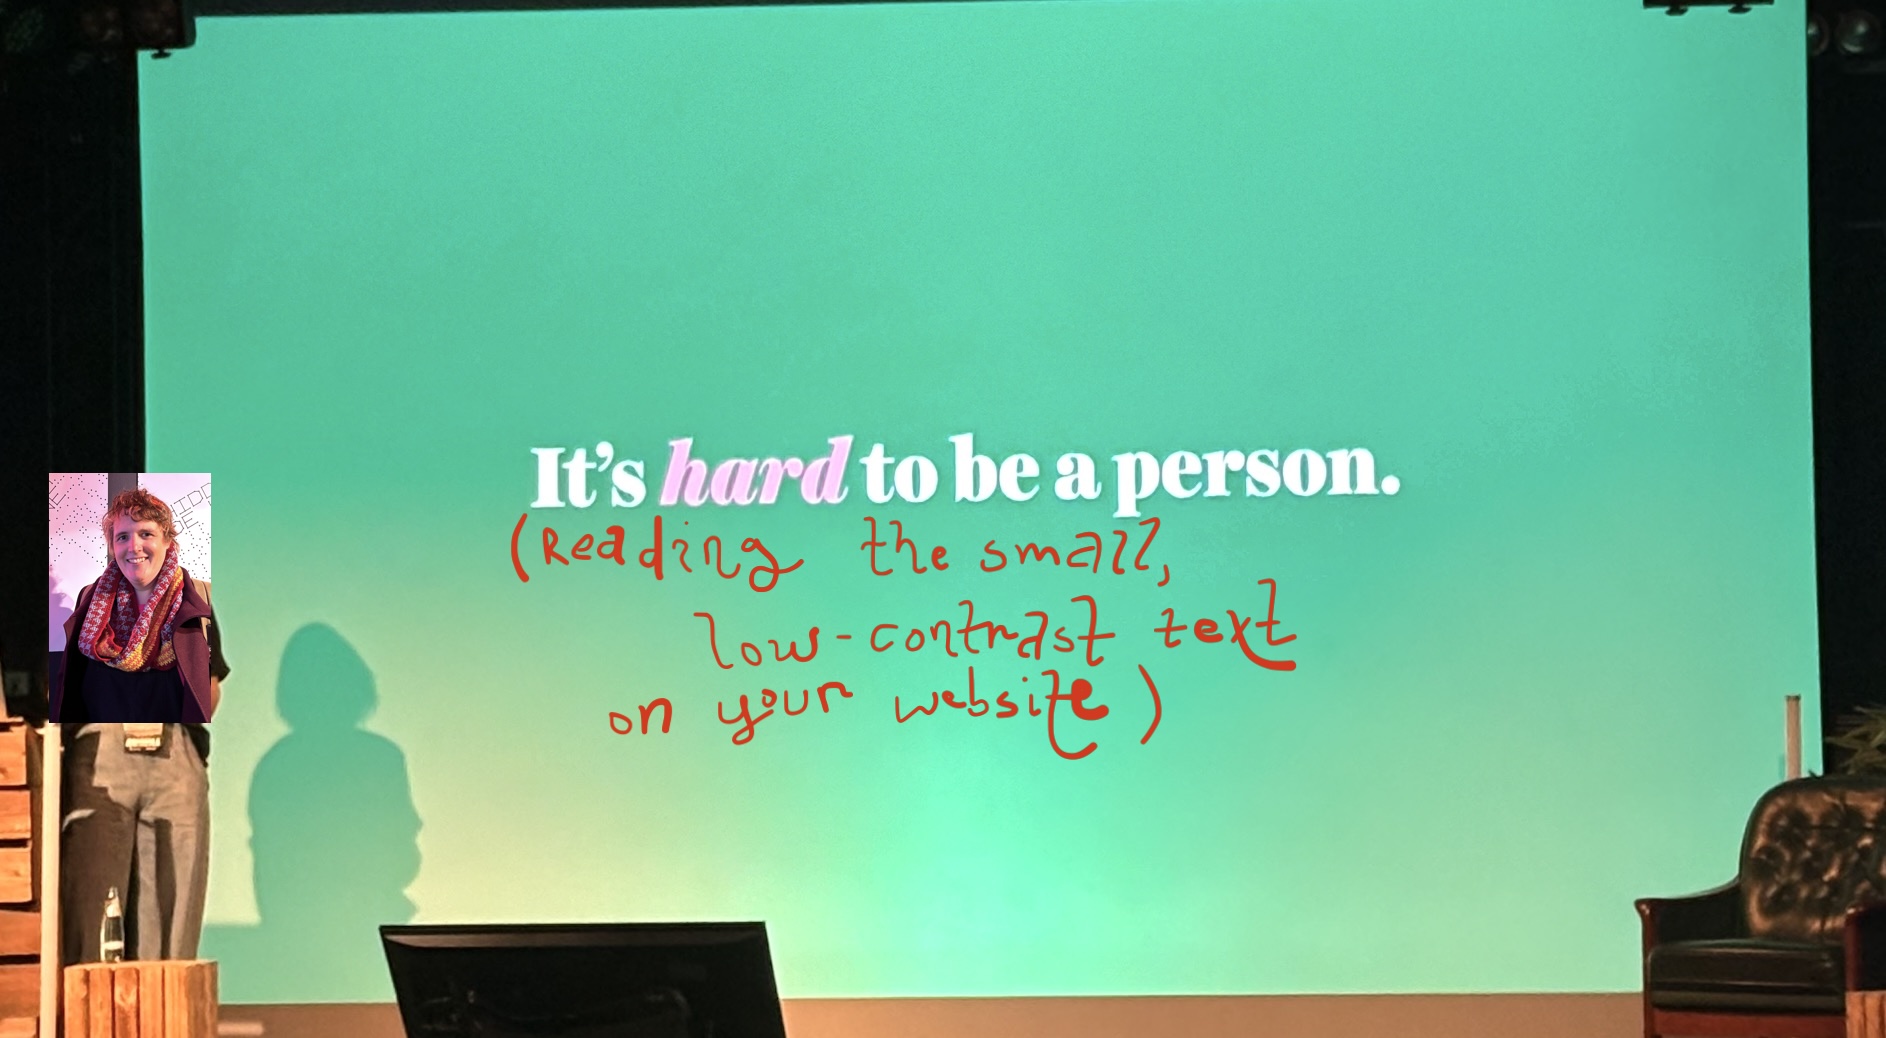 It's hard to be a person.
(Reading the small,
low-contrast text
on your website)